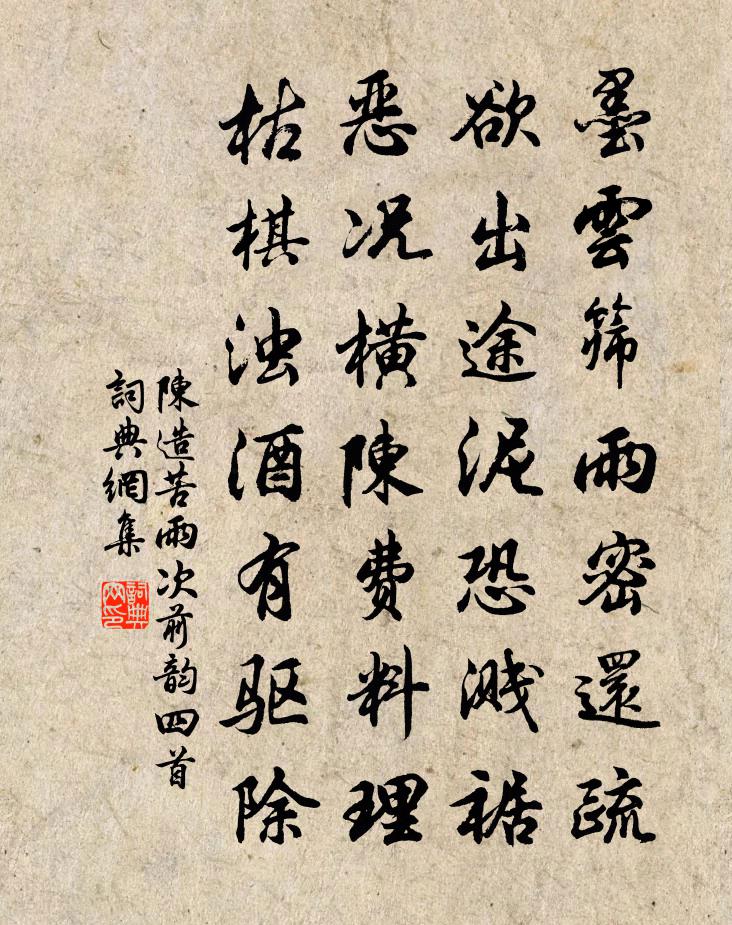 墨雲筛雨密還疏
欲出途泥恐溅裾
恶况橫陳費料理
枯棋浊酒有驱除
陳造苦雨次前韵四首
詞典網集
詞典網印